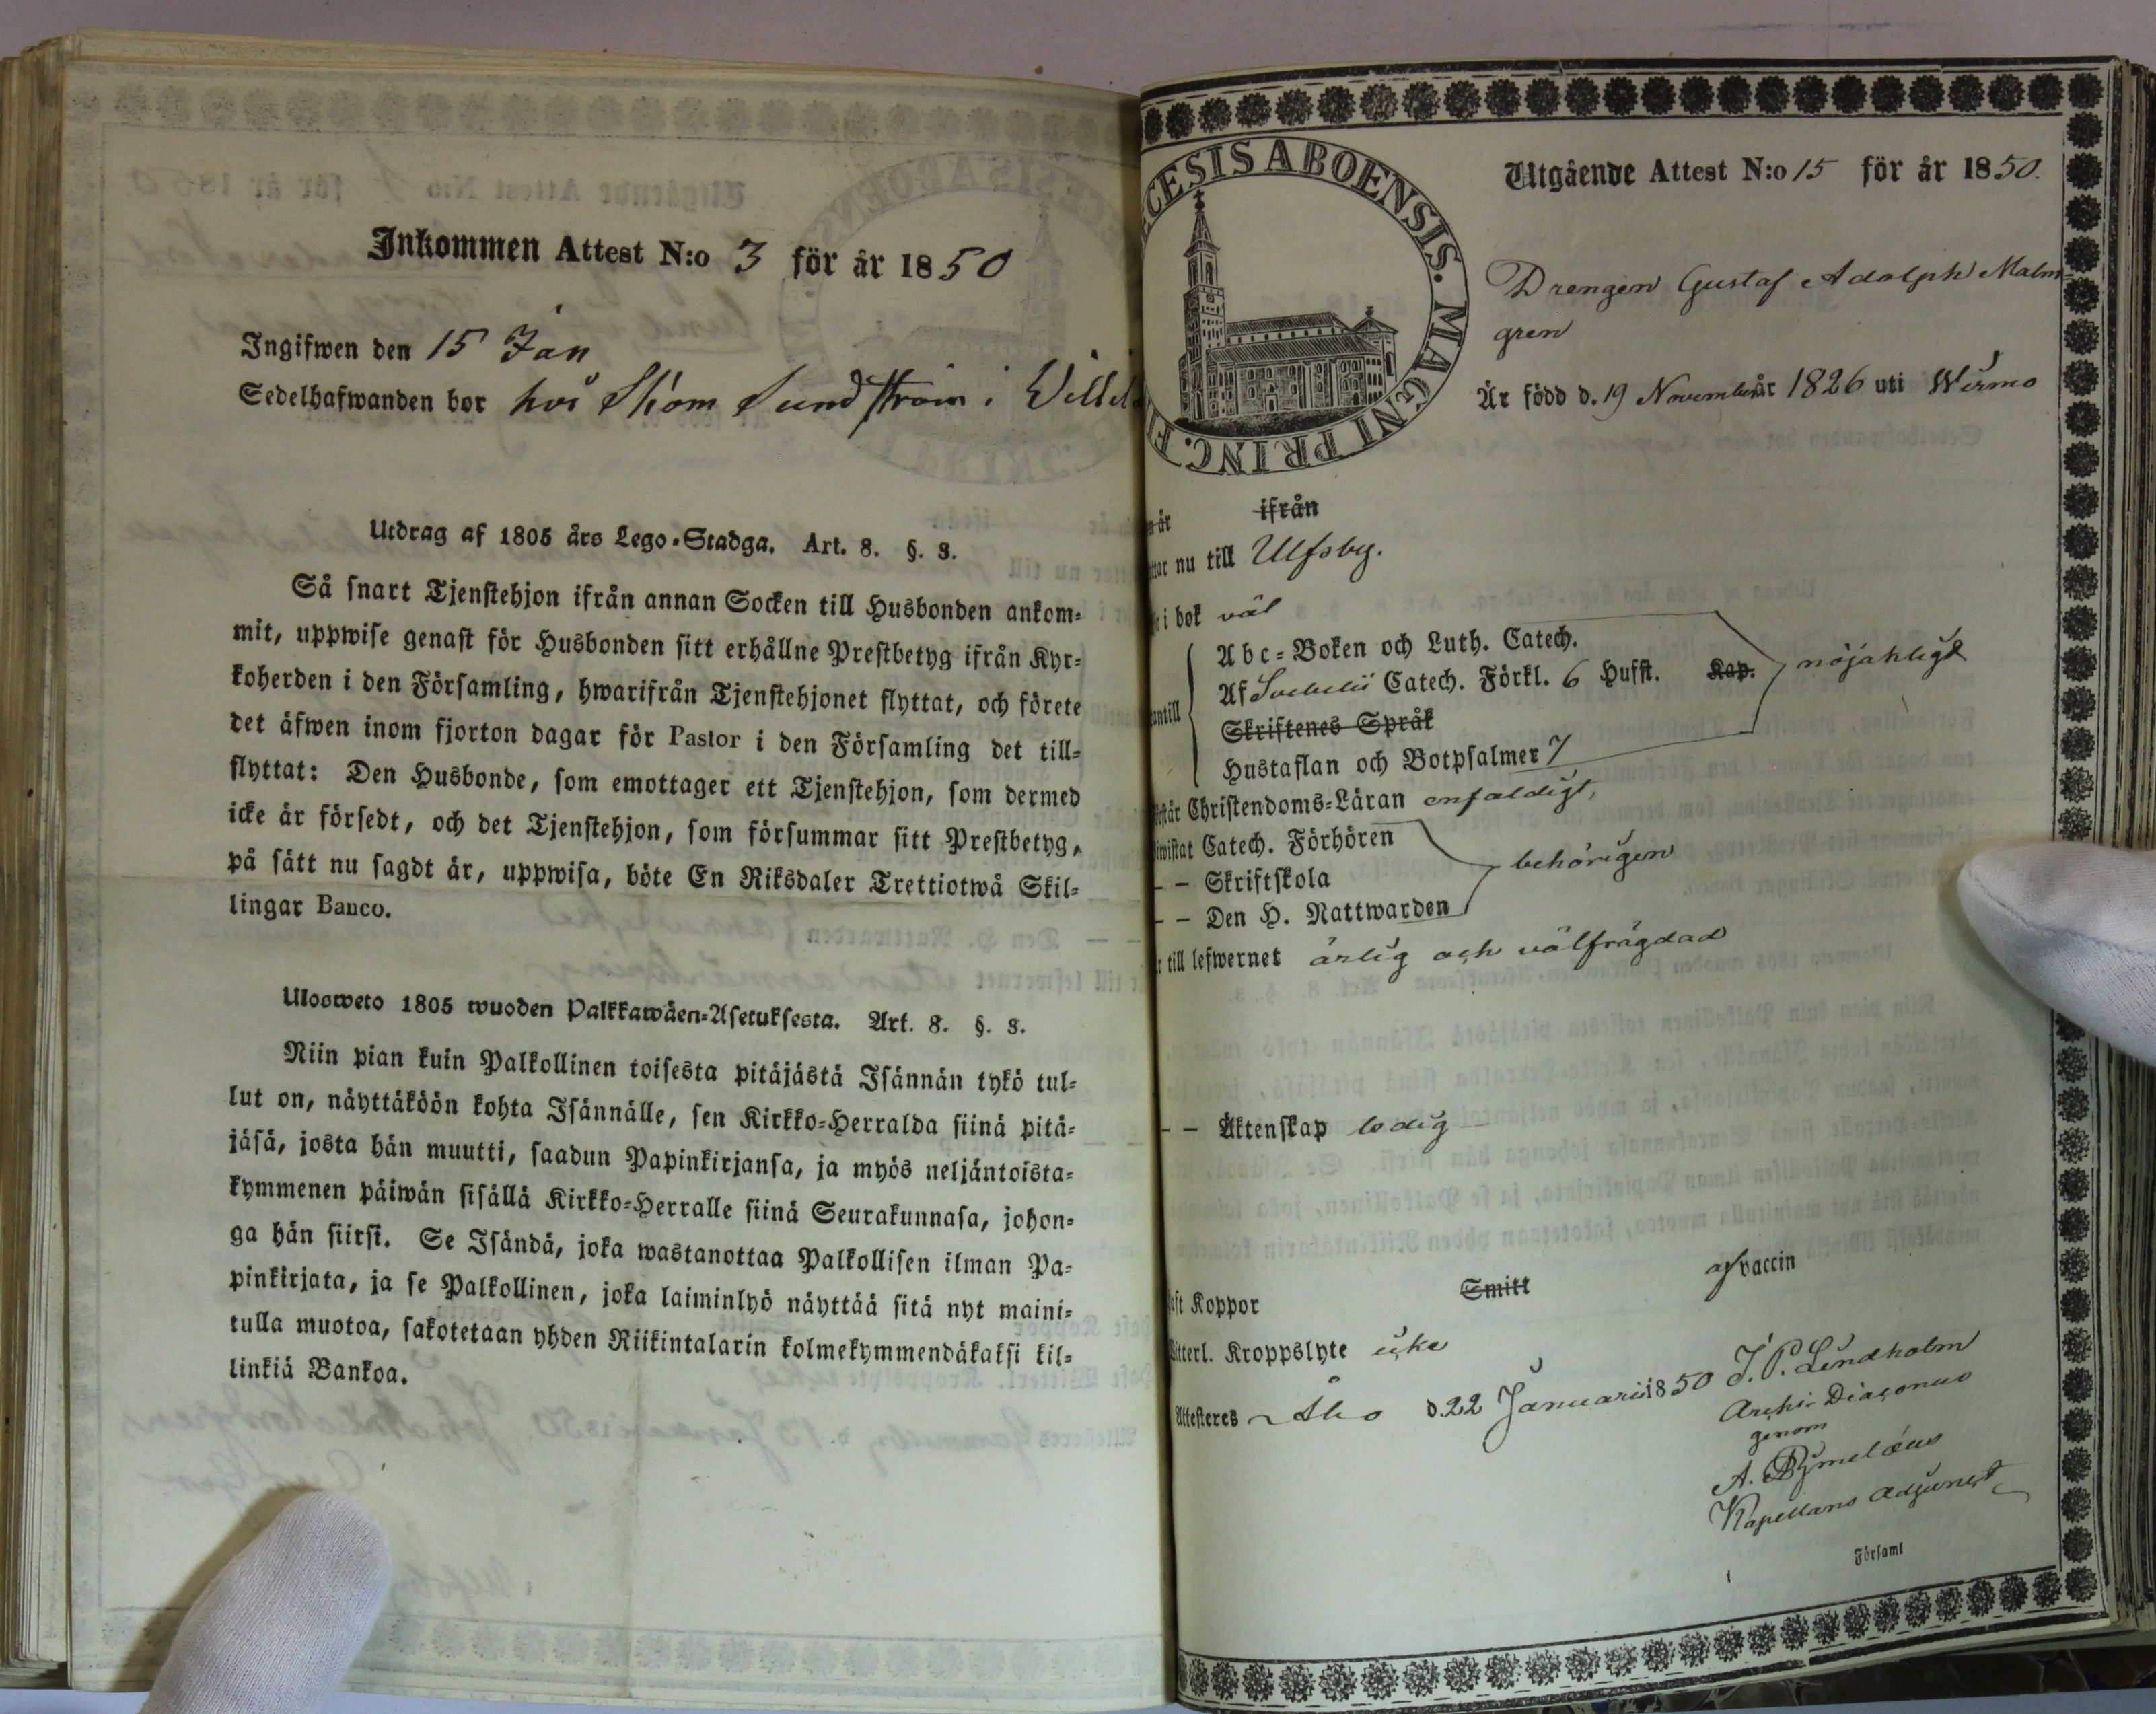 Inkommen Attest N:o 3 för år 1850
Ingifwen den 15 Jan
Sedelhafwanden bor hos Skom Sundström i
Utdrag af 1805 års Lego-Stadga. Art. 8. §. 3.
Så snart Tjenstehjon ifrån annan Socken till Husbonden ankom-
mit, uppwise genast för Husbonden sitt erhållne Prestbetyg ifrån Kyr-
koherden i den Församling, hwarifrån Tjenstehjonet flyttat, och förete
det äfwen inom fjorton dagar för Pastor i den Församling det till-
flyttat: Den Husbonde, som emottager ett Tjenstehjon, som dermed
icke är försedt, och det Tjenstehjon, som försummar sitt Prestbetyg,
på sätt nu sagdt är, uppwisa, böte En Riksdaler Trettiotwå Skil-
lingar Banco.
Ulosweto 1805 wuoden Palkkawäen-Asetuksesta. Art. 8. §. 3.
Niin pian kuin Palkollinen toisesta pitäjästä Isännän tykö tul-
lut on, näyttäköön kohta Isännälle, sen Kirkko-Herralda siinä pitä-
jäsä, josta hän muutti, saadun Papinkirjansa, ja myös neljäntoista-
kymmenen päiwän sisällä Kirkko-Herralle siinä Seurakunnasa, johon-
ga hän siirsi. Se Isändä, joka wastanottaa Palkollisen ilman Pa-
pinkirjata, ja se Palkollinen, joka laiminlyö näyttää sitä nyt maini-
tulla muotoa, sakotetaan yhden Riikintalarin kolmekymmendäkaksi kil-
linkiä Bankoa.
CESIS ABOENSIS. MAGNI PRINC. FI
Utgående Attest N:o 15 för år 1850.
Drengen Gustaf Adolph Malm-
gren
Är född d. 19 November år 1826 uti Wirmo
år ifrån
tar nu till Ulfsby.
i bok väl
Abc-Boken och Luth. Catech.
Af Svebelii Catech. Förkl. 6 Hufst. Kap. nöjaktligt
antill
Skriftenes Språk
Hustaflan och Botpsalmer 7
står Christendoms-Läran enfaldigt,
wistat Catech. Förhören
– – Skriftskola behörigen
– – Den H. Nattwarden
r till lefwernet ärlig och välfrägdad
– – Äktenskap ledig
ft Koppor Smitt af vaccin
itterl. Kroppslyte icke
Attesteres Åbo d. 22 Januarii 1850 J. P. Lindholm
Archi-Diaconus
genom
A. Rymeläus
Kapellans Adjunct
Församl